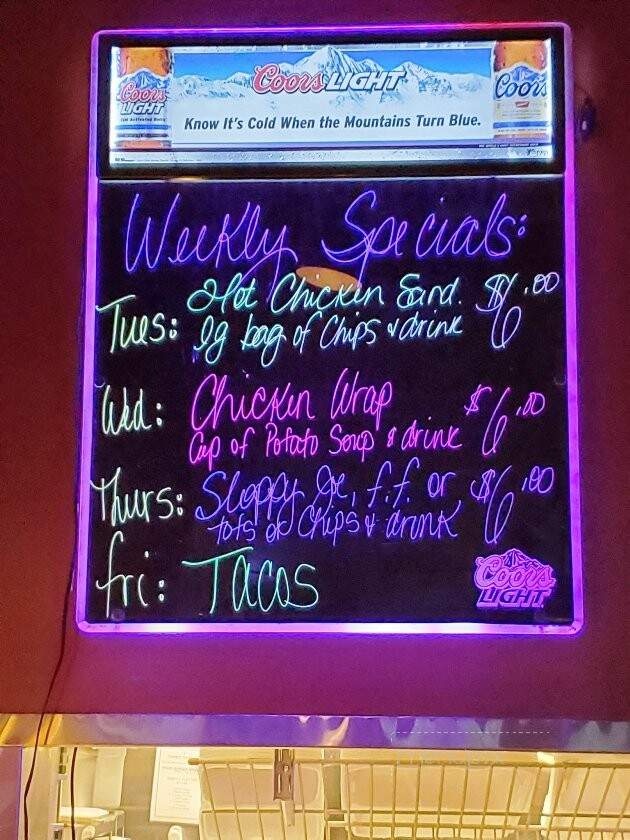 Coors LIGHT
Coors LIGHT
Coors
Know It's Cold When the Mountains Turn Blue.
Weekly Specials:
Tues: Hot Chicken Sand. $6.00
lg bag of Chips & drink
Wed: Chicken Wrap $6.00
Cup of Potato Soup & drink
Thurs: Sloppy Joe, f.f. or $6.00
tots or Chips & drink
Fri: Tacos
Coors
LIGHT